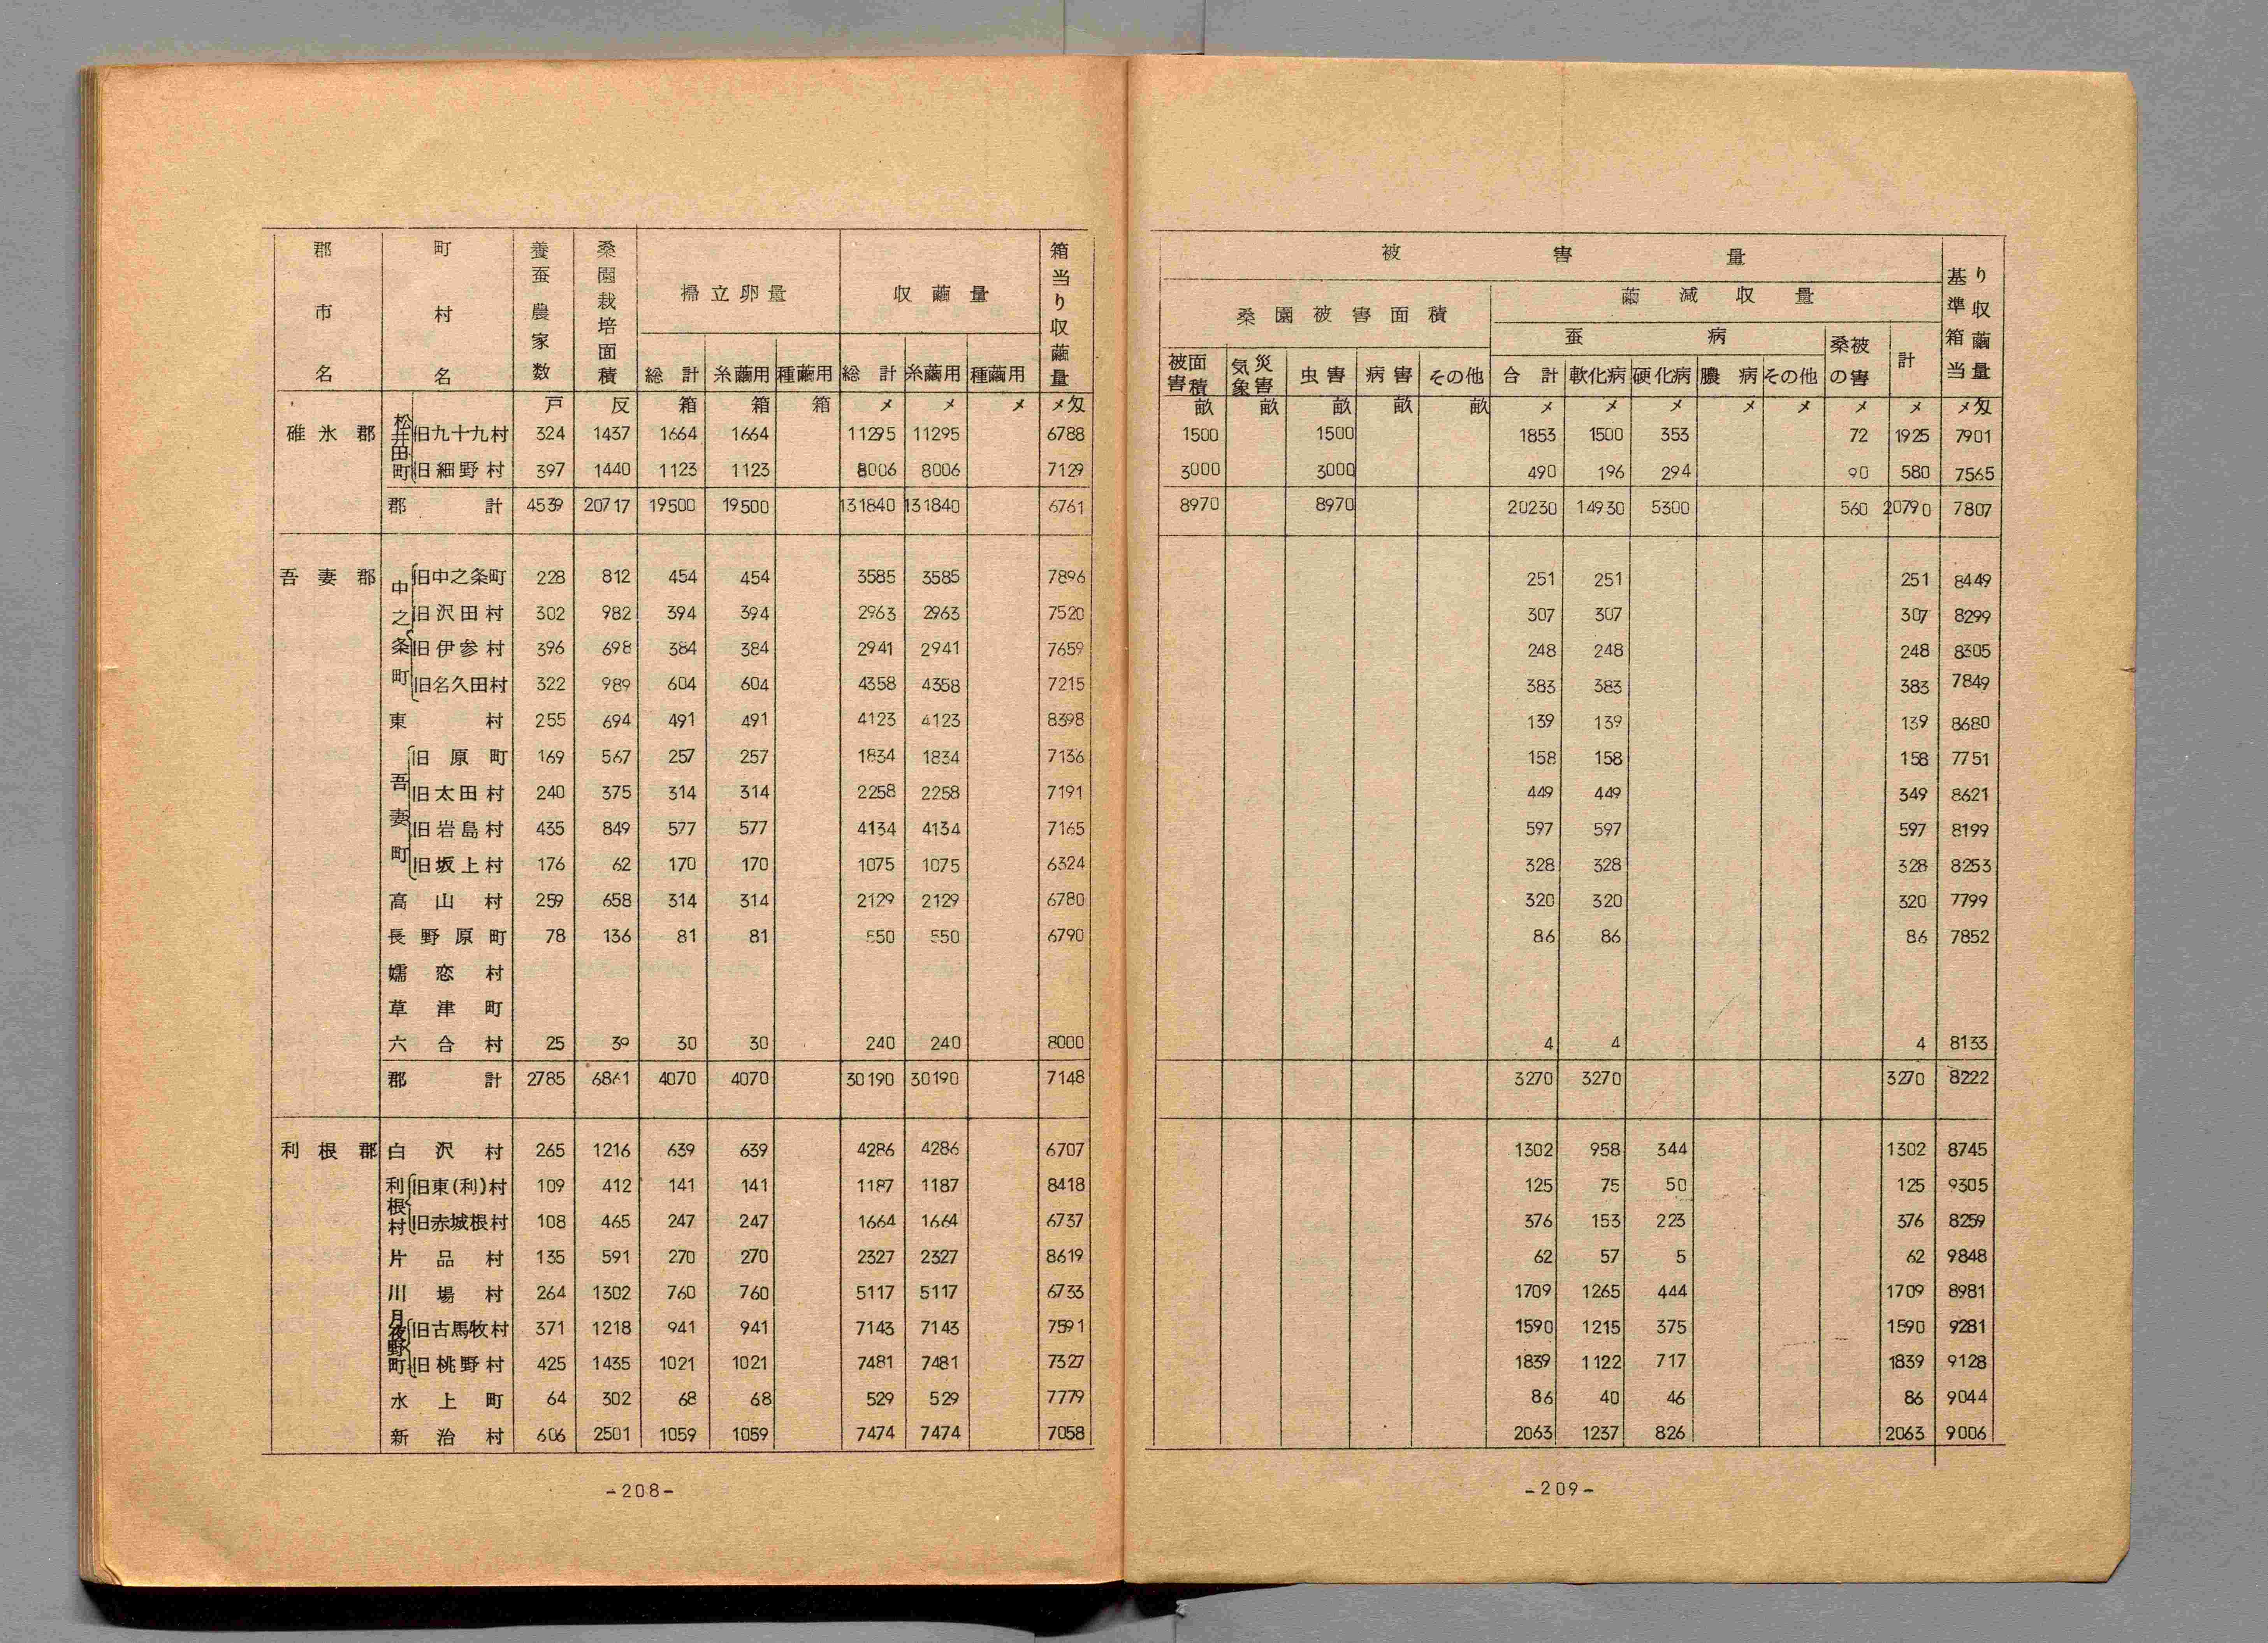 郡市名 町村名 養蚕農家数 桑園栽培面積 掃立卵量 収繭量 箱当り収繭量
総計 糸繭用 種繭用 総計 糸繭用 種繭用
戸 反 箱 箱 箱 メ メ メ メ匁
碓氷郡 松井田町 旧九十九村 324 1437 1664 1664 11295 11295 6788
旧細野村 397 1440 1123 1123 8006 8006 7129
郡計 4539 20717 19500 19500 131840 131840 6761
吾妻郡 中之条町 旧中之条町 228 812 454 454 3585 3585 7896
旧沢田村 302 982 394 394 2963 2963 7520
旧伊参村 396 698 384 384 2941 2941 7659
旧名久田村 322 989 604 604 4358 4358 7215
東村 255 694 491 491 4123 4123 8398
吾妻町 旧原町 169 567 257 257 1834 1834 7136
旧太田村 240 375 314 314 2258 2258 7191
旧岩島村 435 849 577 577 4134 4134 7165
旧坂上村 176 62 170 170 1075 1075 6324
高山村 259 658 314 314 2129 2129 6780
長野原町 78 136 81 81 550 550 6790
嬬恋村
草津町
六合村 25 39 30 30 240 240 8000
郡計 2785 6861 4070 4070 30190 30190 7148
利根郡 白沢村 265 1216 639 639 4286 4286 6707
利根村 旧東(利)村 109 412 141 141 1187 1187 8418
旧赤城根村 108 465 247 247 1664 1664 6737
片品村 135 591 270 270 2327 2327 8619
川場村 264 1302 760 760 5117 5117 6733
月夜野町 旧古馬牧村 371 1218 941 941 7143 7143 7591
旧桃野村 425 1435 1021 1021 7481 7481 7327
水上町 64 302 68 68 529 529 7779
新治村 606 2501 1059 1059 7474 7474 7058
-208-
被害量 基準箱当り収繭量
桑園被害面積 繭減収量
蚕病 桑被の害 計
被害面積 気象災害 虫害 病害 その他 合計 軟化病 硬化病 膿病 その他
畝 畝 畝 畝 畝 メ メ メ メ メ メ メ メ匁
1500 1500 1853 1500 353 72 1925 7901
3000 3000 490 196 294 90 580 7565
8970 8970 20230 14930 5300 560 20790 7807
251 251 251 8449
307 307 307 8299
248 248 248 8305
383 383 383 7849
139 139 139 8680
158 158 158 7751
449 449 349 8621
597 597 597 8199
328 328 328 8253
320 320 320 7799
86 86 86 7852
4 4 4 8133
3270 3270 3270 8222
1302 958 344 1302 8745
125 75 50 125 9305
376 153 223 376 8259
62 57 5 62 9848
1709 1265 444 1709 8981
1590 1215 375 1590 9281
1839 1122 717 1839 9128
86 40 46 86 9044
2063 1237 826 2063 9006
-209-